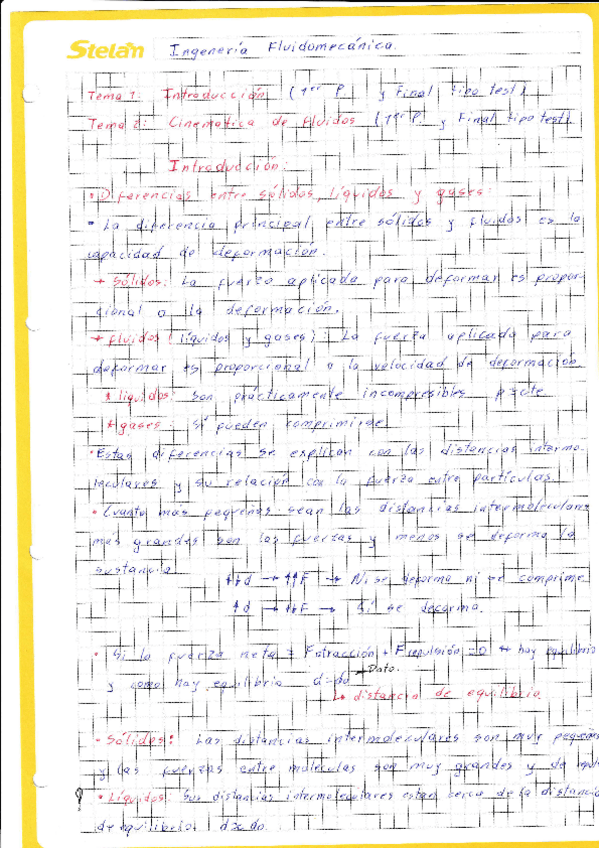 Stelan Ingeneria Fluidomecánica.
Tema 1: Introducción (1er P. y Final tipo test)
Tema 2: Cinematica de fluidos (1er P. y Final tipo test)
Introducción:
• Diferencias entre sólidos, líquidos y gases:
- La diferencia principal entre sólidos y fluidos es la
capacidad de deformación.
→ Sólidos: La fuerza aplicada para deformar es propor-
cional a la deformación.
→ fluidos (líquidos y gases): La fuerza aplicada para
deformar es proporcional a la velocidad de deformación
* líquidos: son prácticamente incompresibles ρ=cte
* gases: sí pueden comprimirse.
• Estas diferencias se explican con las distancias intermo-
leculares y su relación con la fuerza entre partículas.
• Cuanto más pequeñas sean las distancias intermoleculares
más grandes son las fuerzas y menos se deforma la
sustancia.
↓↓d → ↑↑F → Ni se deforma ni se comprime
↑d → ↓↓F → Sí se deforma.
• Si la fuerza neta = Fatracción + Frepulsión = 0 ↔ hay equilibrio
y como hay equilibrio d=do → Dato.
↳ distancia de equilibrio
• Sólidos: Las distancias intermoleculares son muy pequeñas
y las fuerzas entre moléculas son muy grandes y de
• Líquidos: Sus distancias intermoleculares están cerca de la distancia
de equilibrio d≈do.